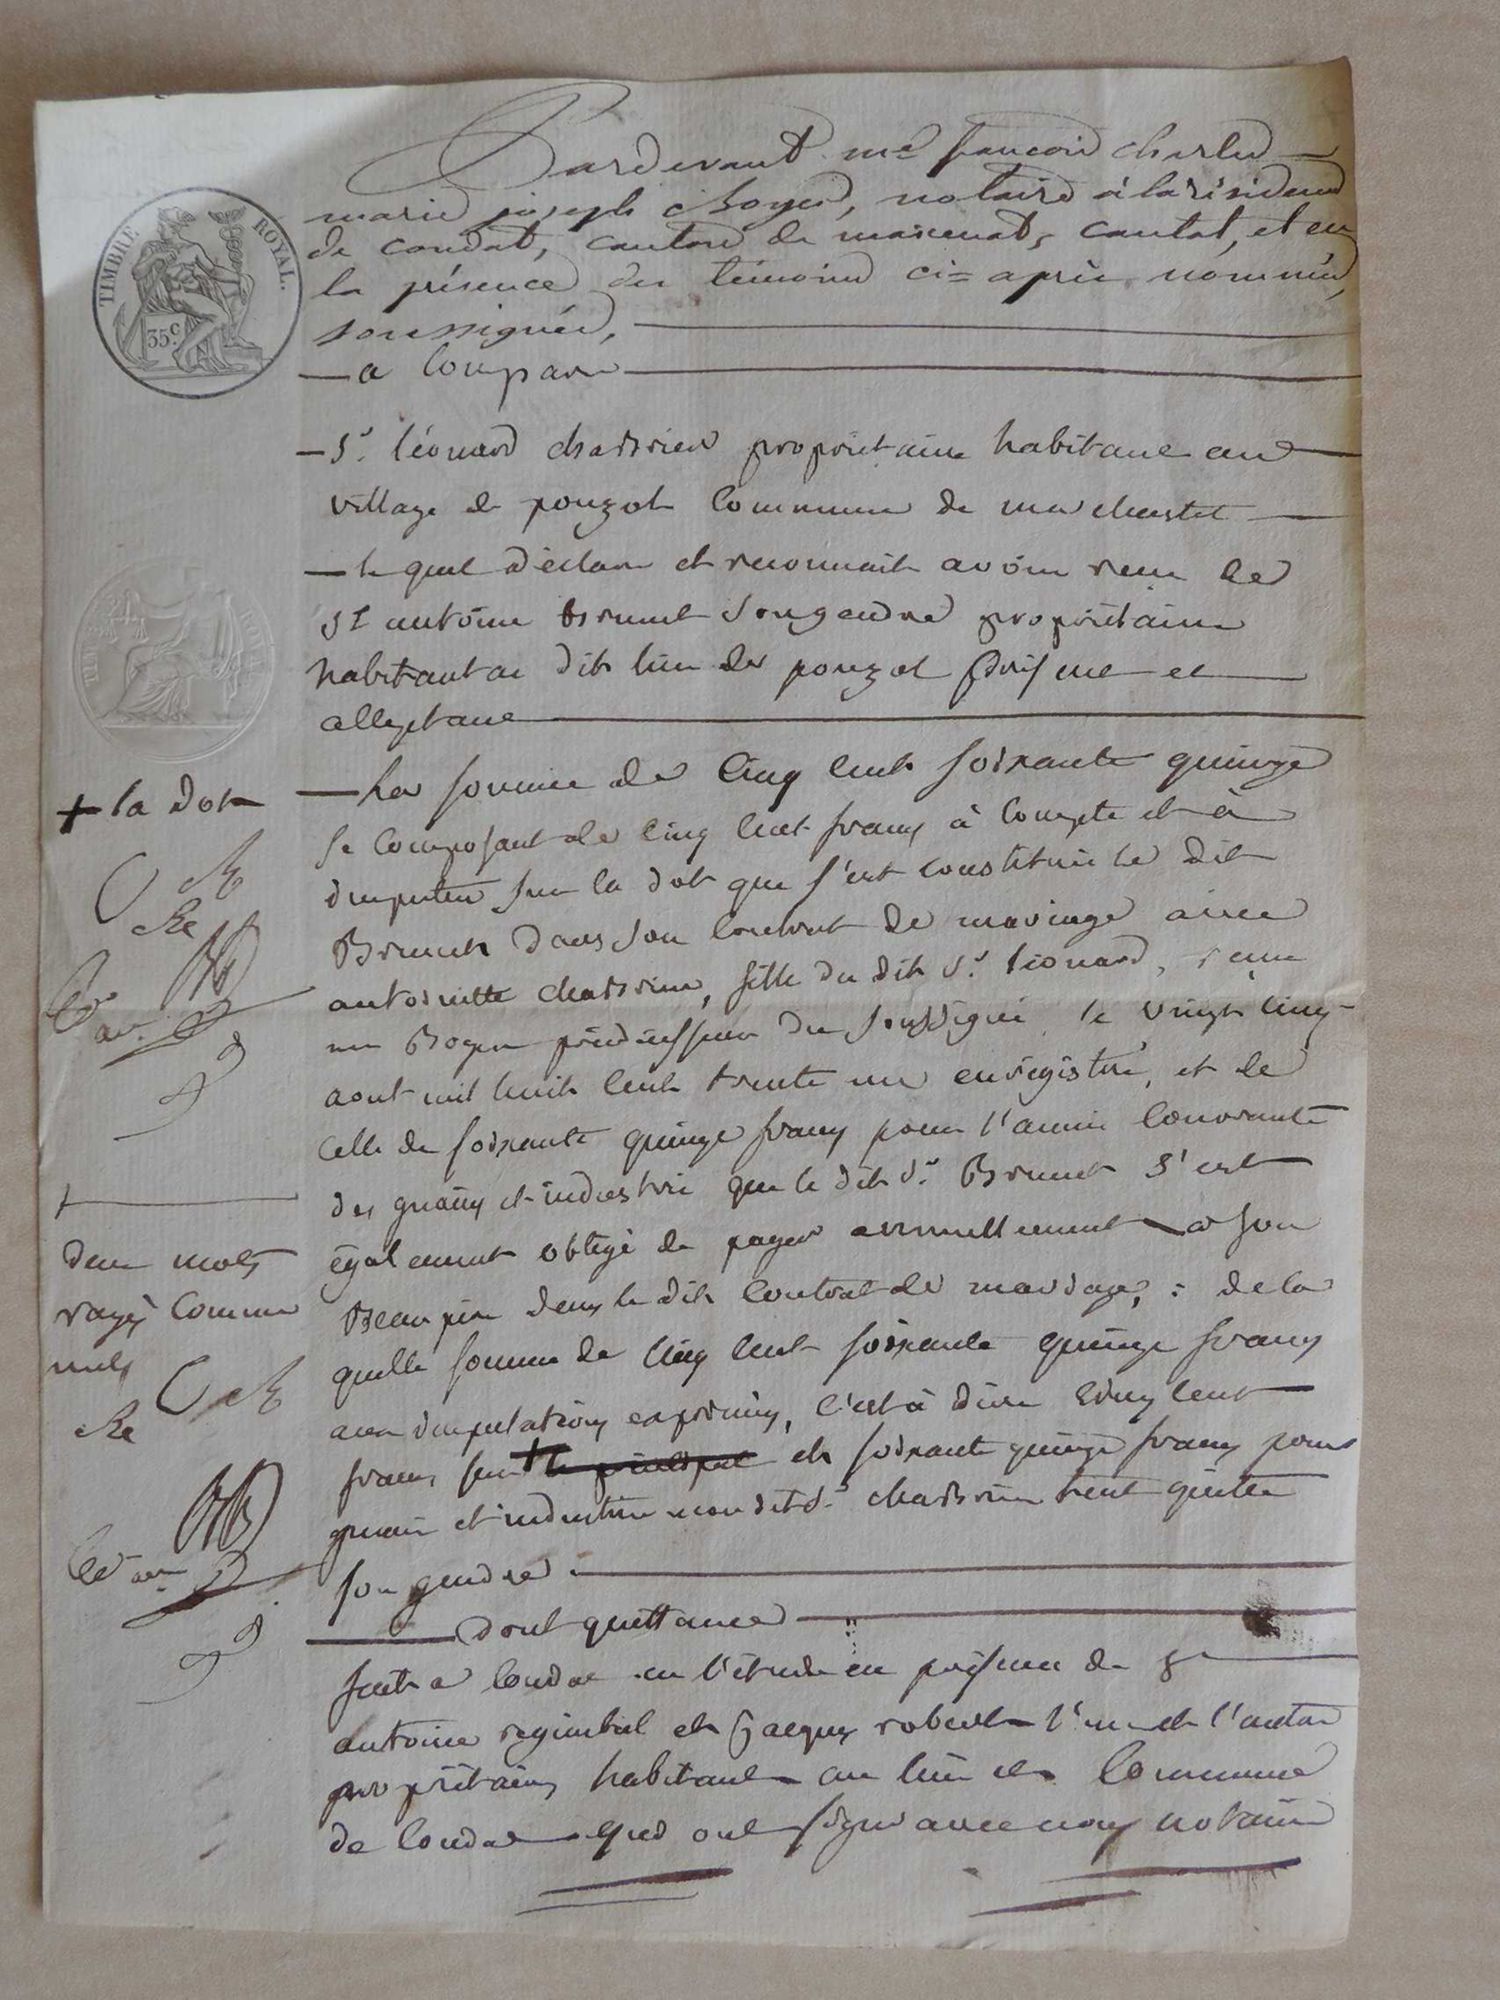 TIMBRE ROYAL.
35c
Pardevant me francois charles
marie joseph Boyer, notaire à la résidence
de condat, canton de marcenat, cantal, et en
la présence des témoins ci=après nommés,
soussignés,
— a Comparu
— Sr. léonard chassrier propriétaire habitant au
village de pouzol Commune de marchastel
— le quel déclare et reconnait avoir reçu de
Sr antoine Brunet son gendre propriétaire
habitant au dit lieu de pouzol présent et
acceptant
— La somme de Cinq Cent soixante quinze
se Composant de Cinq Cent francs à Compte et à
imputer sur la dot que s'est constituée le dit
Brunet dans son Contrat de mariage avec
antoinette chassrier, fille du dit Sr. léonard, reçu
me Boyer prédécesseur du soussigné le vingt cinq
aout mil huit Cent trente un enregistré, et de
Celle de soixante quinze francs pour l'année Courante
des gains et industrie que le dit Sr. Brunet s'est
également obligé de payer annuellement a son
Beau père dans le dit Contrat de mariage, : de la
quelle somme de Cinq Cent soixante quinze francs
avec imputations exprimées, C'est à dire Cinq Cent
francs sur + le principal et soixante quinze francs pour
gain et industrie mondit Sr. chassrier tient quitte
son gendre
Dont quittance
fait a Condat en l'étude en présence de Sr
antoine reginbal et Jacques robert l'un et l'autre
propriétaires habitant au lieu et Commune
de Condat qui ont signé avec nous notaire
+ la Dot
deux mots
rayés Comme
nuls